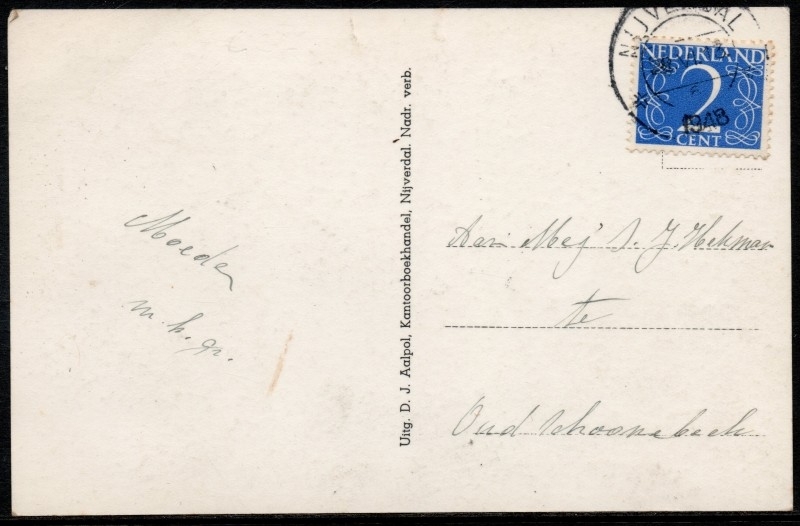 NIJVERDAL
1948
NEDERLAND
2
CENT
Moeder
m. h. gr.
Uitg. D. J. Aalpol, Kantoorboekhandel, Nijverdal. Nadr. verb.
Aan Mej S. J. Hekman
te
Oud Schoonebeek